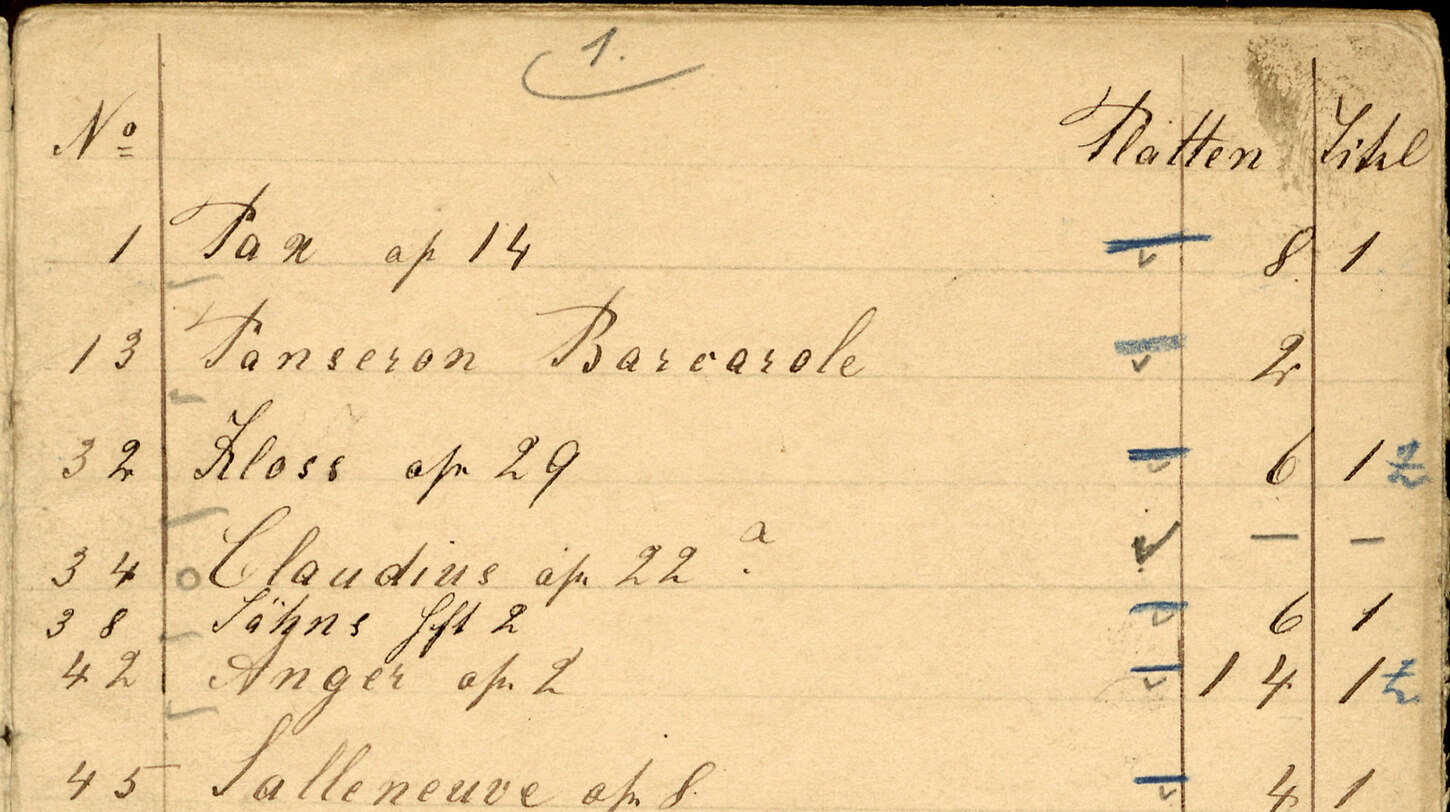 1.
No Platten Titel
1 Pax op 14 8 1
13 Panseron Barcarole 2
32 Kloss op 29 6 1
34 Claudius op. 22 a. — —
38 Sähns Hft 2 6 1
42 Anger op. 2 14 1
45 Salleneuve op. 8 4 1